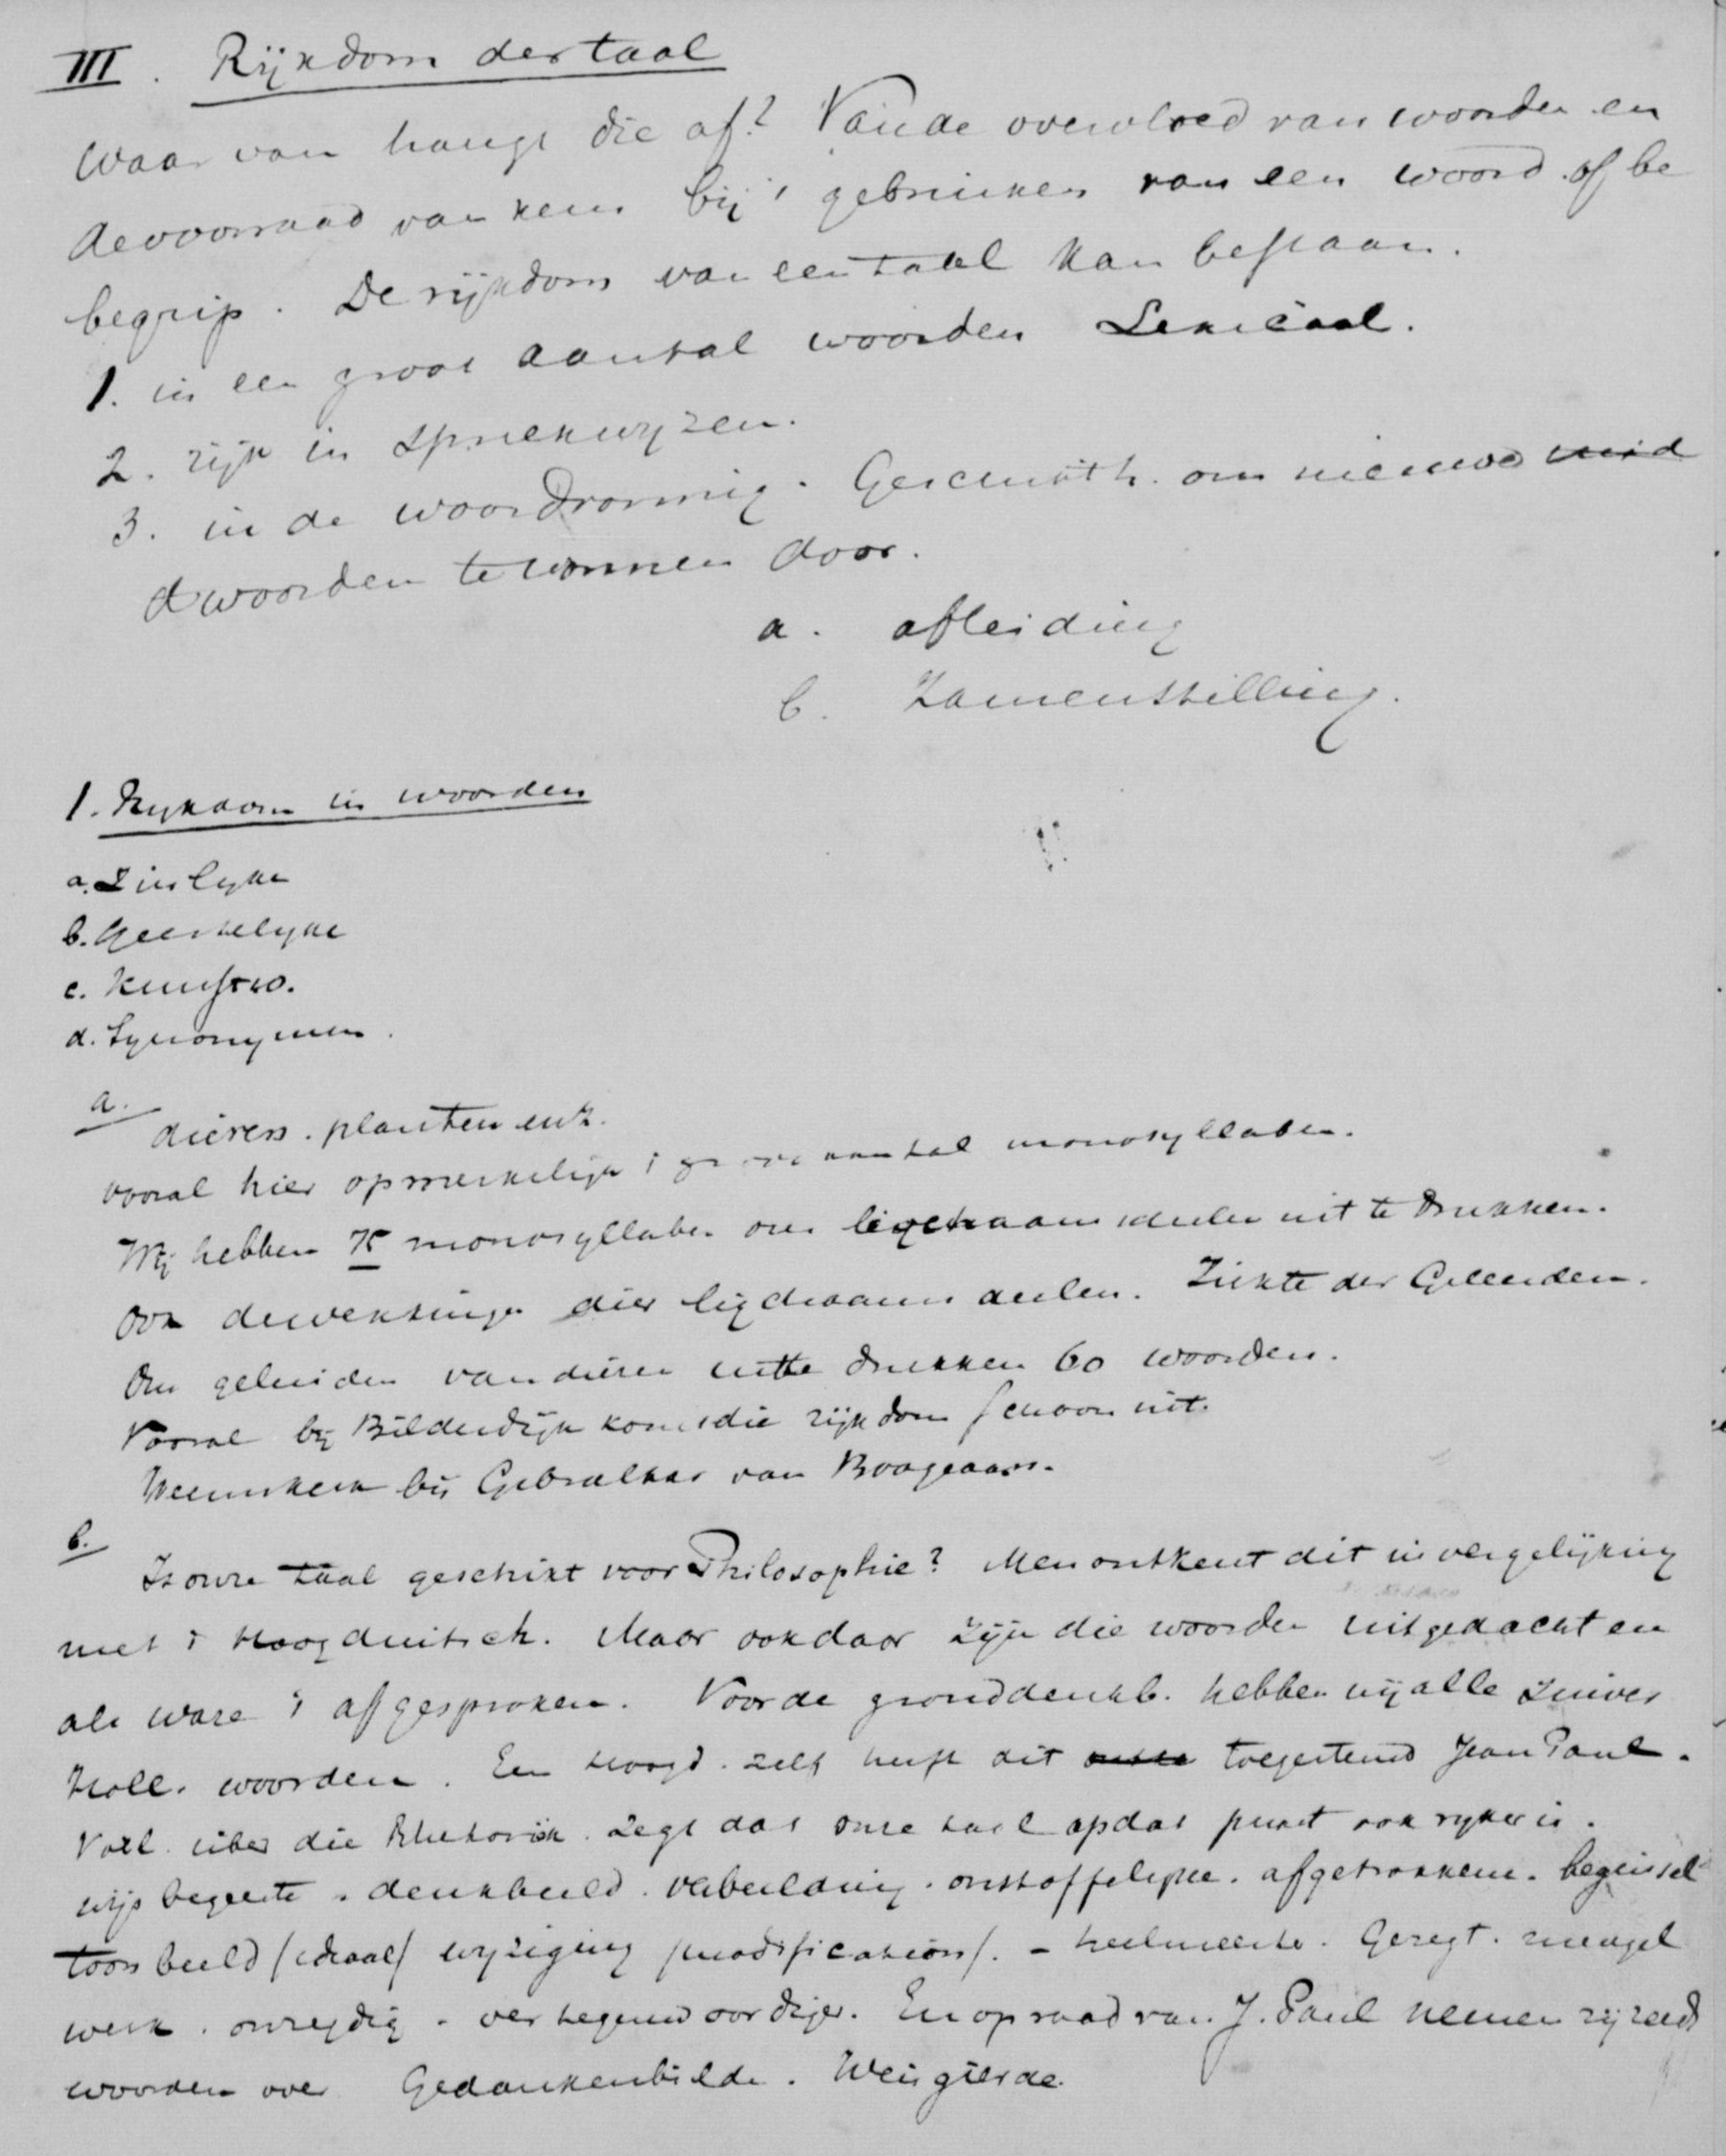 III. Rijkdom der taal
Waar van hangt die af? Van de overvloed van woorden en
de voorraad van keus bij 't gebruiken van een woord of be
begrip. De rijkdom van een taal kan bestaan.
1. in een groot aantal woorden Lexicaal.
2. rijk in spreekwyzen.
3. in de woordvorming. Geschikth. om nieuwe
woorden te vormen door.
a. afleiding
b. Zamenstelling.
1. Rykdom in woorden
a. Zinlyke
b. Geestelyke
c. Kunstw.
d. Synonymen.
a.
dieren. planten enz.
vooral hier opmerkelijk 't groot aantal monosyllaben.
Wij hebben 75 monosyllaben om ligchaamsdeelen uit te drukken.
Ook de werkingen dier ligchaams deelen. Ziekte der Geleerden.
Om geluiden van dieren uitte drukken 60 woorden.
Vooral by Bilderdijk komt die rijkdom schoon uit.
Heemskerk bij Gibraltar van Boogaars.
b.
Is onze taal geschikt voor Philosophie? Men ontkent dit in vergelijking
met 't Hoogduitsch. Maar ook daar zijn die woorden uitgedacht en
als ware 't afgesproken. Voor de gronddenkb. hebben wij alle zuiver
Holl. woorden. Een Hoogd. zelf heeft dit toegestemd Jean Paul.
Vorl. über die Rhetorik. Zegt dat onze taal op dat punt ook ryker is.
wijsbegeerte. denkbeeld. verbeelding. onstoffelyke. afgetrokkene. beginsel
toonbeeld (ideaal) wyziging (modification). - heelmeester. Geregt. mengel
werk. onzydig. vertegenwoordiger. En op raad van J. Paul nemen zij reeds
woorden over Gedankenbilde. Weisgierde.